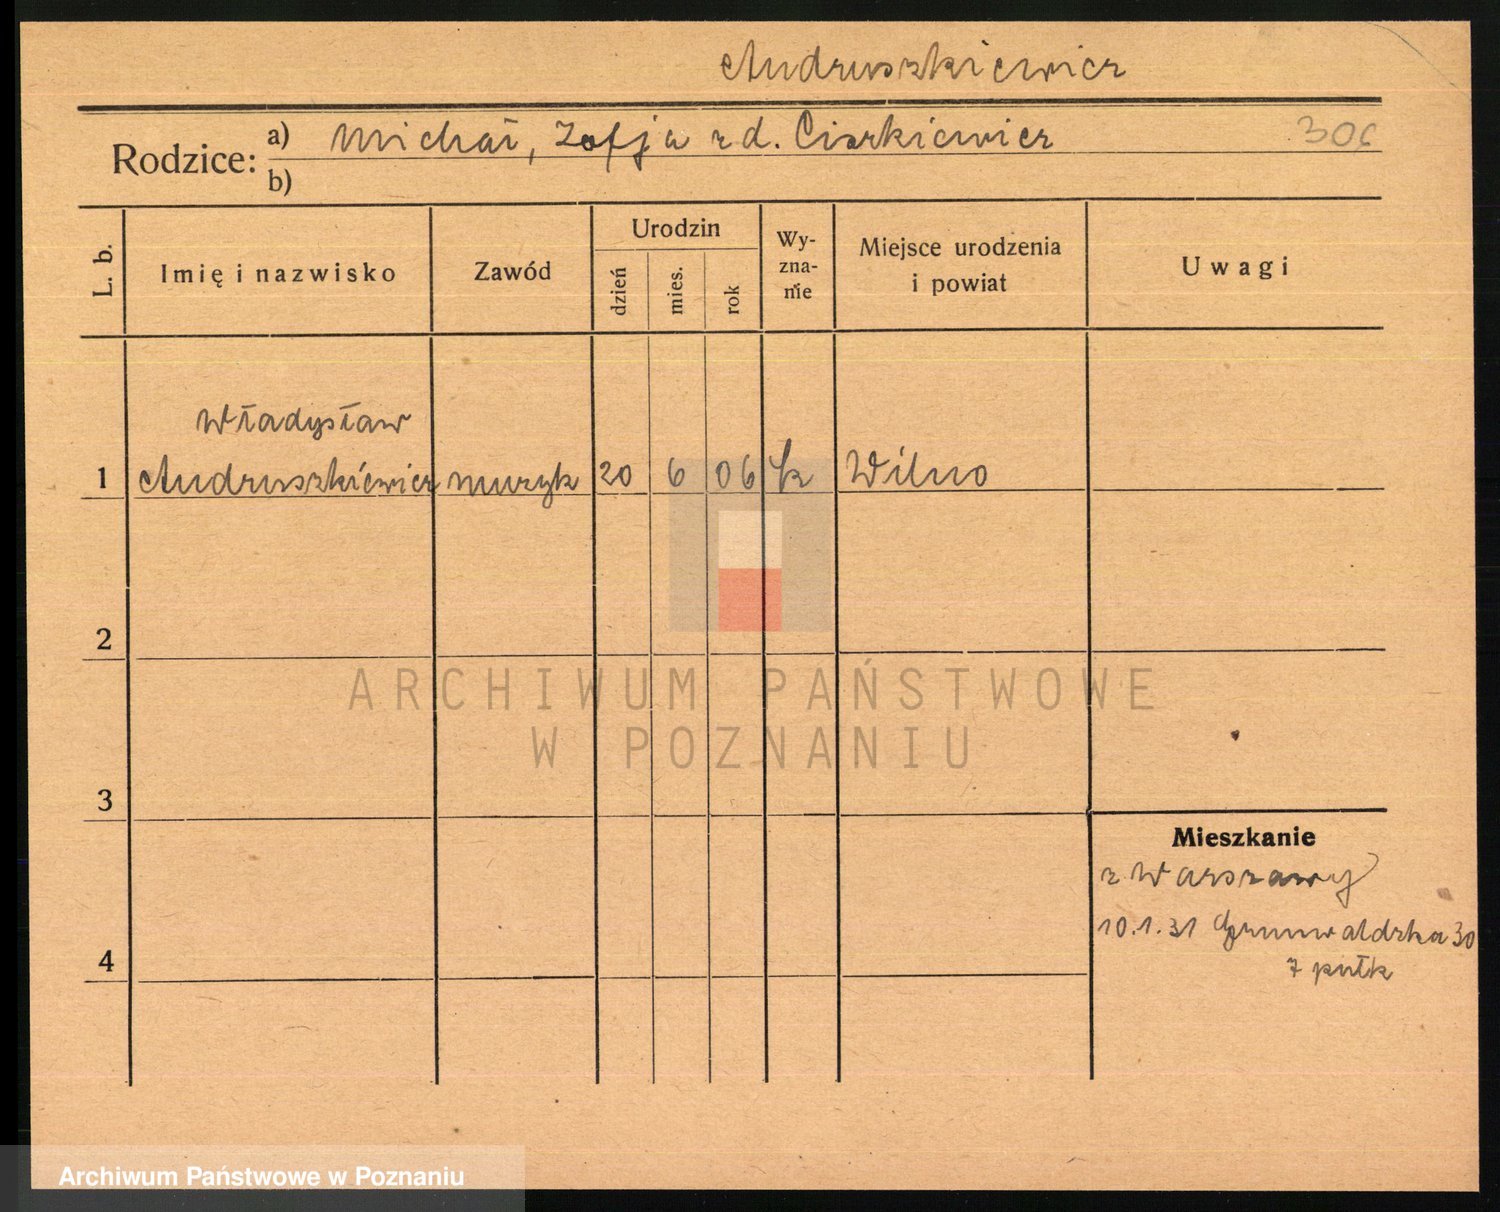 Andruszkiewicz
Rodzice: a) Michał, Zofja z d. Ciszkiewicz 306
b)
L. b.
Imię i nazwisko
Zawód
Urodzin
dzień
mies.
rok
Wy-
zna-
nie
Miejsce urodzenia
i powiat
Uwagi
Władysław
1 Andruszkiewicz muzyk 20 6 06 rk Wilno
2
ARCHIWUM PAŃSTWOWE
W POZNANIU
3
Mieszkanie
z Warszawy
10.1.31 Grunwaldzka 30
7 pułk
4
Archiwum Państwowe w Poznaniu